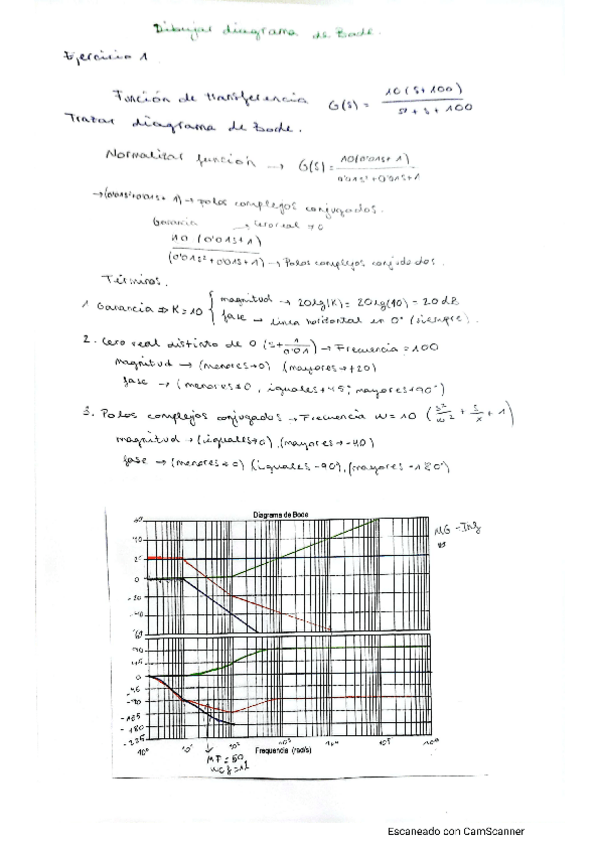 Dibujar diagrama de Bode.
Ejercicio 1
Función de transferencia G(s) = 10(s+100) / s²+s+100
Trazar diagrama de Bode.
Normalizar función → G(s) = 10(0'01s+1) / 0'01s²+0'01s+1
→(0'01s²+0'01s+1)→ polos complejos conjugados.
Ganancia → Cero real ≠0
10 (0'01s+1) / (0'01s²+0'01s+1) → Polos complejos conjudados.
Términos.
1 Ganancia ⇒ K=10 { magnitud → 20lg(K)= 20lg(10) = 20dB
fase → linea horizontal en 0° (siempre).
2. Cero real distinto de 0 (s+ 1/0'01) → Frecuencia = 100
magnitud → (menores→0) (mayores→+20)
fase → (menores=0, iguales+45°, mayores+90°)
3. Polos complejos conjugados → Frecuencia w=10 (s²/w² + s/x + 1)
magnitud → (iguales→0), (mayores → -40)
fase → (menores=0) (iguales -90), (mayores -180°)
Diagrama de Bode
MG - Inf
20
0
-20
-40
90
45
0
-45
-90
-135
-180
-225
10⁰ 10¹ 10² 10³ 10⁴ 10⁵
Frequencia (rad/s)
MF = 50
Escaneado con CamScanner